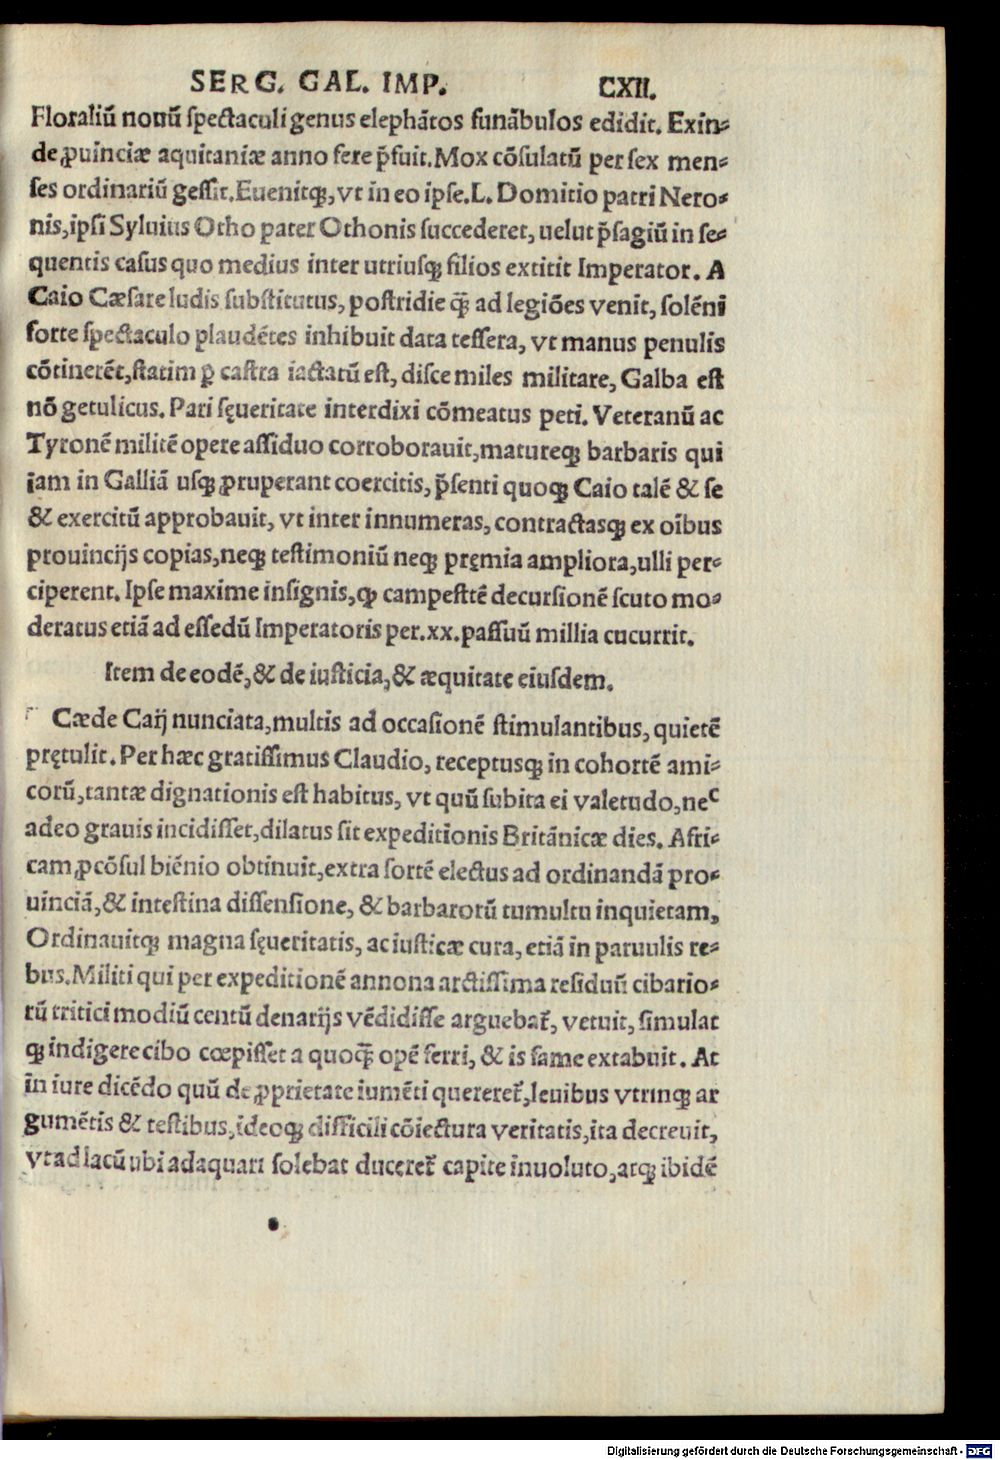 SERG. GAL. IMP. CXII.
Floraliū nouū ſpectaculi genus elephātos funābulos edidit. Exin⸗
de ꝓuinciæ aquitaniæ anno fere p̄fuit. Mox cōſulatū per ſex men⸗
ſes ordinariū geſſit. Euenitqꝫ, vt in eo ipſe. L. Domitio patri Nero⸗
nis, ipſi Syluius Otho pater Othonis ſuccederet, uelut p̄ſagiū in ſe⸗
quentis caſus quo medius inter utriuſqꝫ filios extitit Imperator. A
Caio Cæſare ludis ſubſtitutus, poſtridie q̄ꝫ ad legiōes venit, ſolēni
forte ſpectaculo plaudētes inhibuit data teſſera, vt manus penulis
cōtinerēt, ſtatim ꝑ caſtra iactatū eſt, diſce miles militare, Galba eſt
nō getulicus. Pari ſęueritate interdixi cōmeatus peti. Veteranū ac
Tyronē militē opere aſſiduo corroborauit, matureqꝫ barbaris qui
iam in Galliā uſqꝫ ꝓruperant coercitis, p̄ſenti quoqꝫ Caio talē & ſe
& exercitū approbauit, vt inter innumeras, contractasqꝫ ex oībus
prouincijs copias, neqꝫ teſtimoniū neqꝫ pręmia ampliora, ulli per⸗
ciperent. Ipſe maxime inſignis, qꝫ campeſtrē decurſionē ſcuto mo⸗
deratus etiā ad eſſedū Imperatoris per. xx. paſſuū millia cucurrit.
Item de eodē, & de iuſticia, & æquitate eiuſdem.
Cæde Caij nunciata, multis ad occaſionē ſtimulantibus, quietē
prętulit. Per hæc gratiſſimus Claudio, receptusqꝫ in cohortē ami⸗
corū, tantæ dignationis eſt habitus, vt quū ſubita ei valetudo, nec
adeo grauis incidiſſet, dilatus ſit expeditionis Britānicæ dies. Afri⸗
cam ꝓcōſul biēnio obtinuit, extra ſortē electus ad ordinandā pro⸗
uinciā, & inteſtina diſſenſione, & barbarorū tumultu inquietam,
Ordinauitqꝫ magna ſęueritatis, ac iuſticæ cura, etiā in paruulis re⸗
bus. Militi qui per expeditionē annona arctiſſima reſiduū cibario⸗
rū tritici modiū centū denarijs vēdidiſſe arguebat᷑, vetuit, ſimulat
qꝫ indigere cibo cœpiſſet a quoq̄ꝫ opē ferri, & is fame extabuit. At
in iure dicēdo quū de ꝓprietate iumēti quereret᷑, leuibus vtrinqꝫ ar
gumētis & teſtibus, ideoqꝫ difficili cōiectura veritatis, ita decreuit,
vt ad lacū ubi adaquari ſolebat duceret᷑ capite inuoluto, atqꝫ ibidē
Digitalisierung gefördert durch die Deutsche Forschungsgemeinschaft - DFG